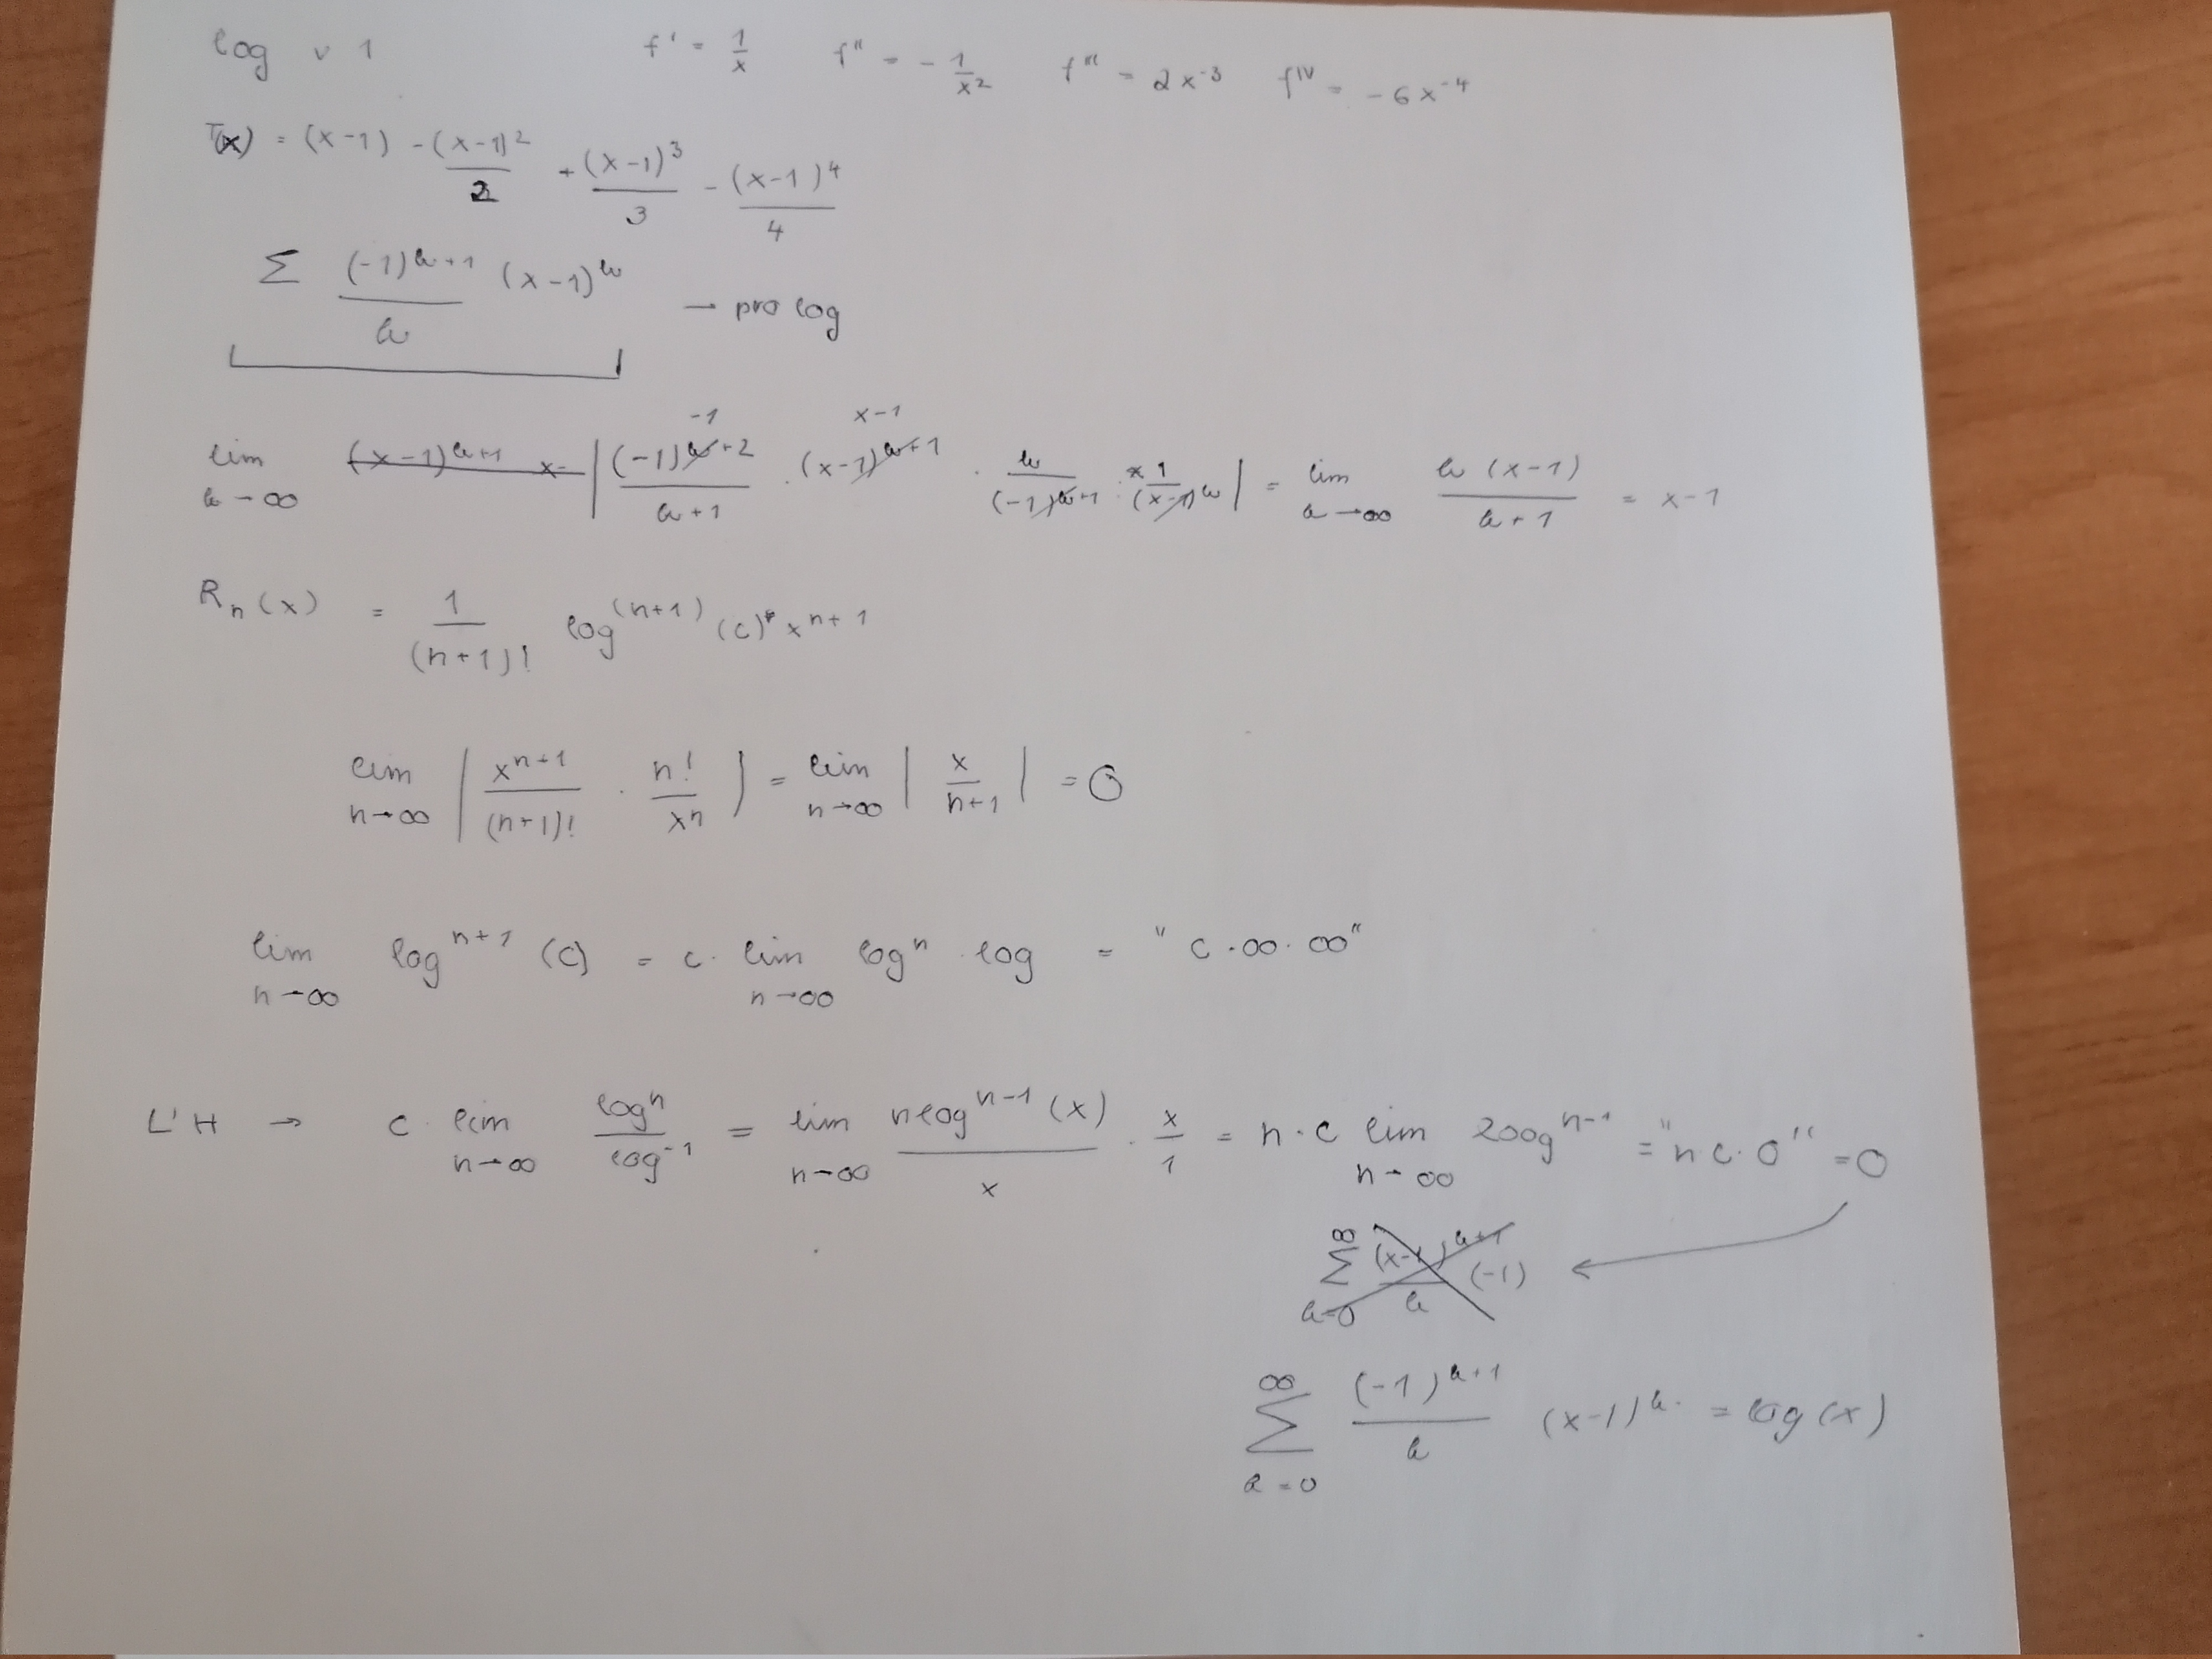 log v 1 f' = 1/x f'' = - 1/x² f''' = 2x⁻³ f^IV = -6x⁻⁴
T(x) = (x-1) - (x-1)²/2 + (x-1)³/3 - (x-1)⁴/4
Σ (-1)^(k+1)/k (x-1)^k → pro log
-1 x-1
lim k→∞ |(-1)^(k+2)/(k+1) · (x-1)^(k+1) · k/(-1)^(k+1) · 1/(x-1)^k| = lim k→∞ k(x-1)/(k+1) = x-1
Rₙ(x) = 1/(n+1)! log^(n+1) (c) x^(n+1)
lim n→∞ | x^(n+1)/(n+1)! · n!/xⁿ | = lim n→∞ | x/(n+1) | = 0
lim n→∞ log^(n+1) (c) = c · lim n→∞ logⁿ · log = "c·∞·∞"
L'H → c · lim n→∞ logⁿ/log⁻¹ = lim n→∞ nlog^(n-1)(x)/x · x/1 = n·c lim n→∞ log^(n-1) = "n c·0" = 0
Σ k=0 ∞ (-1)^(k+1)/k (x-1)^k = log(x)